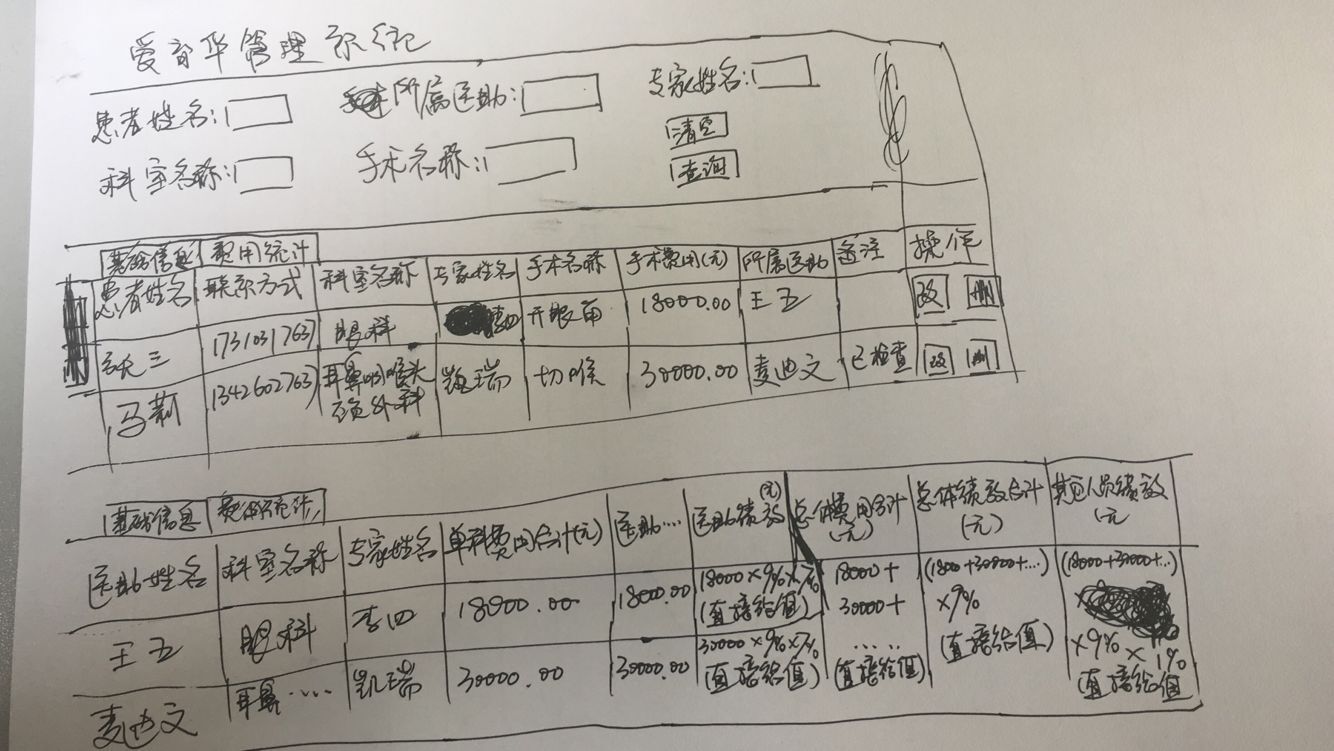 爱育华管理系统
患者姓名: 所属医助: 专家姓名:
科室名称: 手术名称: 清空
查询
基础信息 费用统计
患者姓名 联系方式 科室名称 专家姓名 手术名称 手术费用(元) 所属医助 备注 操作
张三 1731031763 眼科 李四 开眼角 18000.00 王五 改 删
马莉 1342602763 耳鼻咽喉头 凯瑞 切喉 30000.00 麦迪文 已检查 改 删
颈外科
基础信息 费用统计
医助姓名 科室名称 专家姓名 单科费用合计(元) 医助…… 医助绩效(元) 总体费用合计(元) 总体绩效合计(元) 其它人员绩效(元
王五 眼科 李四 18000.00 18000.00 18000×9%×7% 18000+ (1800+30000+...) (18000+30000+...)
(直接给值) 30000+ ×9% ×9%×1%
…… (直接给值) (直接给值)
麦迪文 耳鼻…… 凯瑞 30000.00 30000.00 30000×9%×7% (直接给值)
(直接给值)